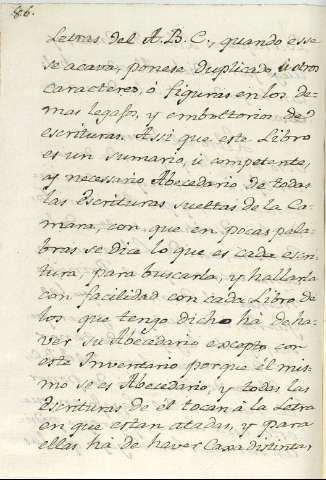 86.
Letras del A. B. C., quando esse
se acava, ponese duplicado, ù otros
caracteres, ò figuras en los de-
mas legajos, y emboltorios de
escrituras. Assi que este Libro
es un sumario, ù competente,
y necessario Abecedario de todas
las Escrituras sueltas de la Ca-
mara, con que en pocas pala-
bras se dice lo que es cada escri-
tura, para buscarla, y hallarla
con facilidad con cada Libro de
los que tengo dicho hà de ha-
ver su Abecedario excepto con
este Inventario porque èl mis-
mo se es Abecedario, y todas las
Escrituras de èl tocan à la Letra
en que estan atadas, y para
ellas hà de haver Caxa distinta